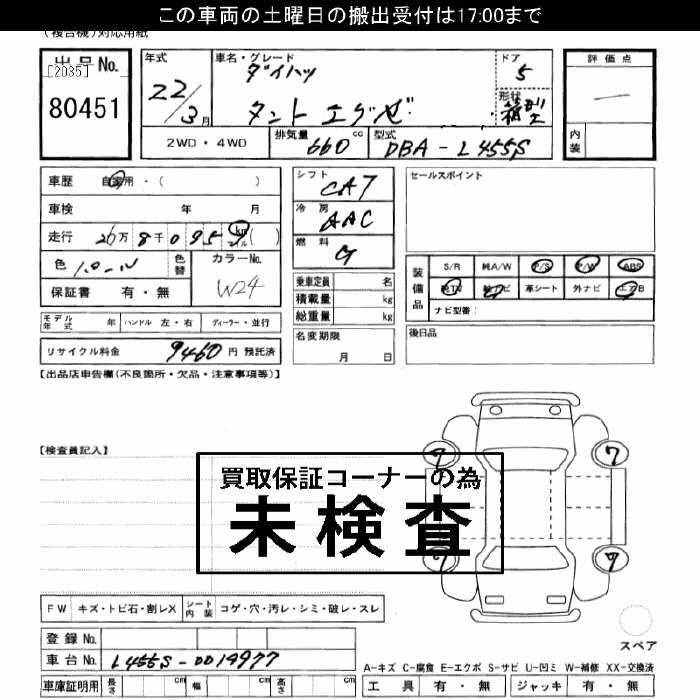 この車両の土曜日の搬出受付は17:00まで
(複合機)対応用紙
出品No.
[2035]
80451
年式
22/3月
車名・グレード
ダイハツ
タント エグゼ
ドア
5
形状
箱型
評価点
内装
2WD・4WD
排気量 660 cc
型式 DBA-L455S
車歴 自家用・( )
車検 年 月
シフト CAT
冷房 AAC
燃料 G
セールスポイント
走行 26万8千0959 km マイル ( )
色 パール
色替
カラーNo. W24
保証書 有・無
乗車定員 名
積載量 kg
総重量 kg
装備品
S/R 純A/W P/S P/W ABS
純TV 純ナビ 革シート 外ナビ エアB
ナビ型番:
モデル年式 年 ハンドル 左・右 ディーラー・並行
名変期限
月 日
後日品
リサイクル料金 9460 円 預託済
【出品店申告欄(不良箇所・欠品・注意事項等)】
【検査員記入】
7 7
7 7
買取保証コーナーの為
未検査
FW キズ・トビ石・割レX シート内装 コゲ・穴・汚レ・シミ・破レ・スレ
スペア
登録No.
車台No. L455S-0019977
A-キズ C-腐食 E-エクボ S-サビ U-凹ミ W-補修 XX-交換済
車庫証明用 長さ cm 幅 cm 高さ cm
工具 有・無 ジャッキ 有・無